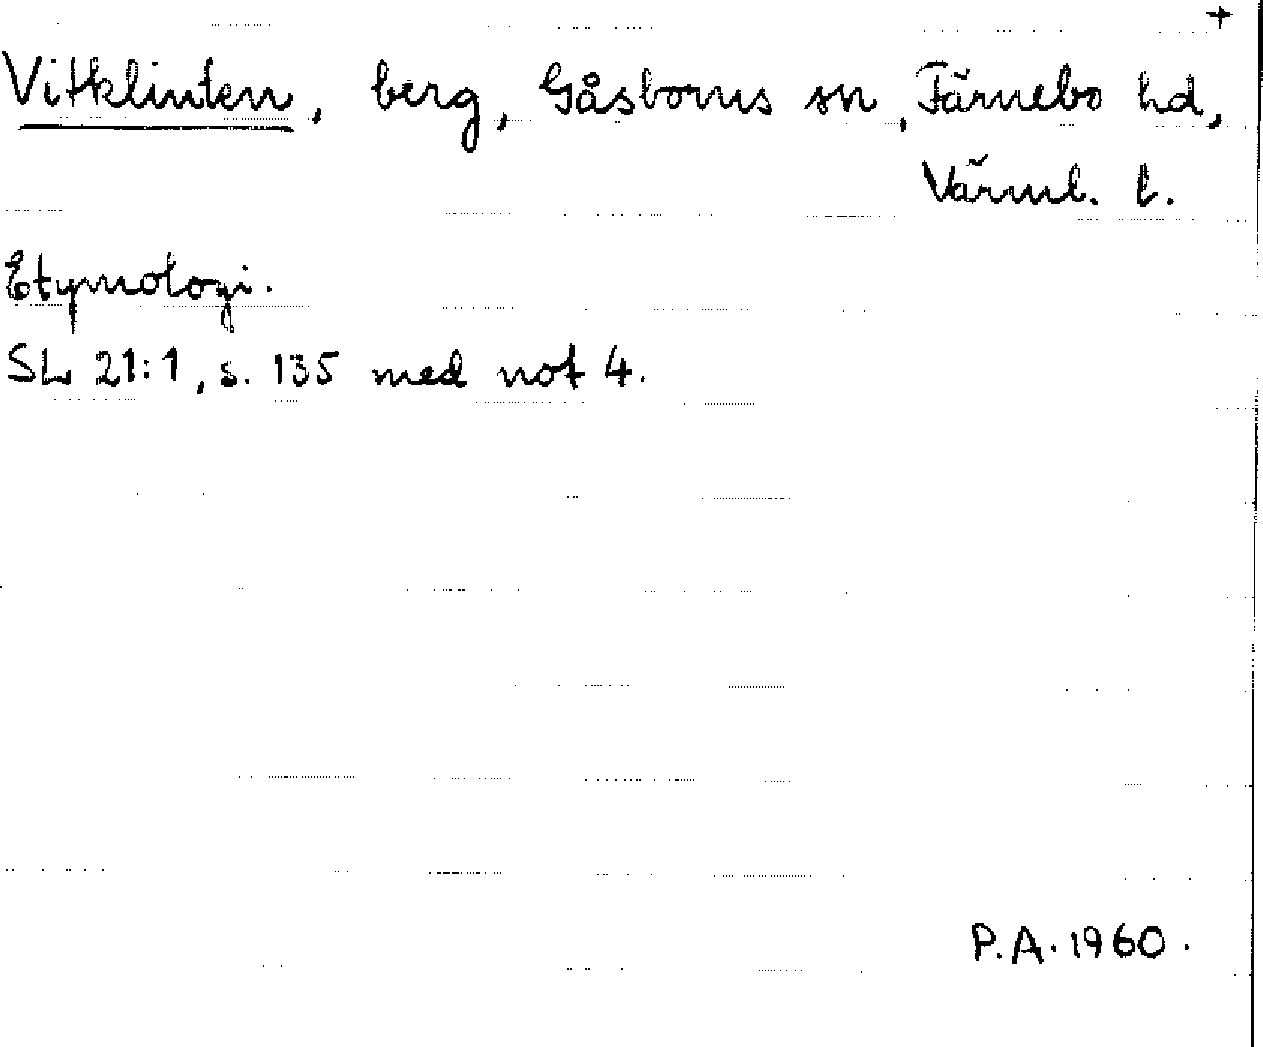 +
Vitklinten, berg, Gåsborns sn, Färnebo hd,
Värml. l.
Etymologi.
SL 21:1, s. 135 med not 4.
P.A. 1960.